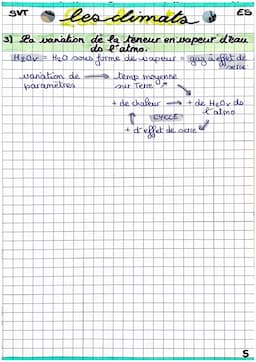 SVT les climats ES
3) La variation de la teneur en vapeur d'eau
ds l'atmo.
H2Ov = H2O sous forme de vapeur = gaz à effet de
serre
variation de → temp moyenne
paramètres sur Terre
+ de chaleur → + de H2Ov ds
l'atmo
CYCLE
+ d'effet de serre
5